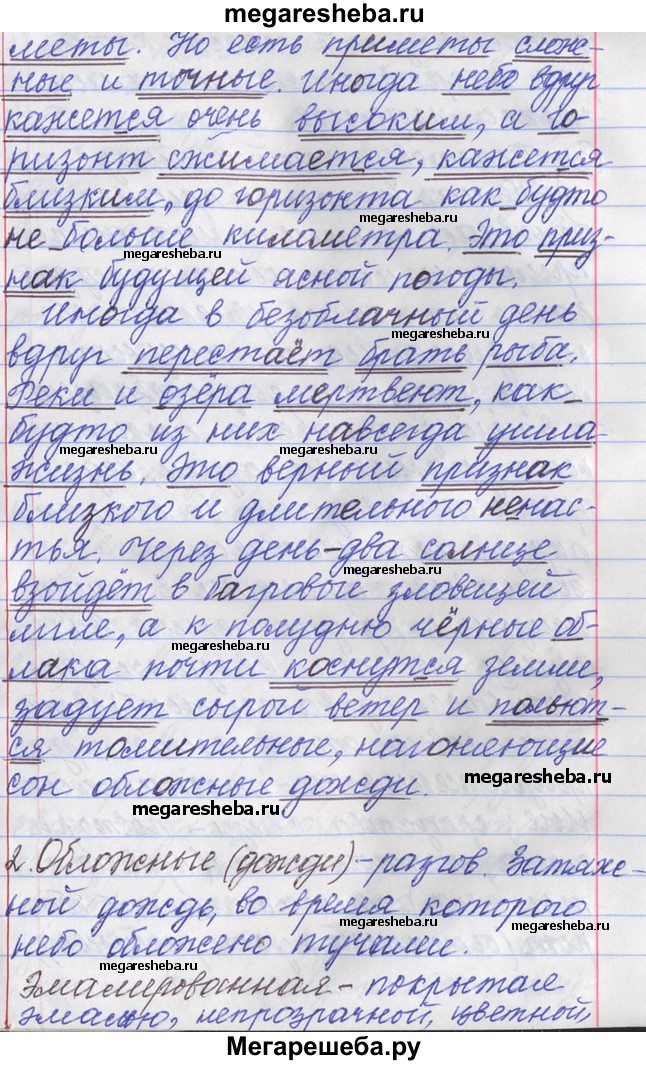 megaresheba.ru
меты. Но есть приметы слож-
ные и точные. Иногда небо вдруг
кажется очень высоким, а го-
ризонт сжимается, кажется
близким, до горизонта как будто
megaresheba.ru
не больше километра. Это приз-
megaresheba.ru
нак будущей ясной погоды.
Иногда в безоблачный день
megaresheba.ru
вдруг перестаёт брать рыба.
Реки и озёра мертвеют, как
будто из них навсегда ушла
megaresheba.ru megaresheba.ru
жизнь. Это верный признак
близкого и длительного ненас-
тья. Через день-два солнце
megaresheba.ru
взойдёт в багровой зловещей
мгле, а к полудню чёрные об-
megaresheba.ru
лака почти коснутся земли,
задует сырой ветер и польют-
ся томительные, нагоняющие
megaresheba.ru
сон обложные дожди.
megaresheba.ru
2. Обложные (дожди) - разгов. Затяж-
ной дождь, во время которого
megaresheba.ru megaresheba.ru
небо обложено тучами.
megaresheba.ru
Эмалированная - покрытая
эмалью, непрозрачной, цветной,
Мегарешеба.ру